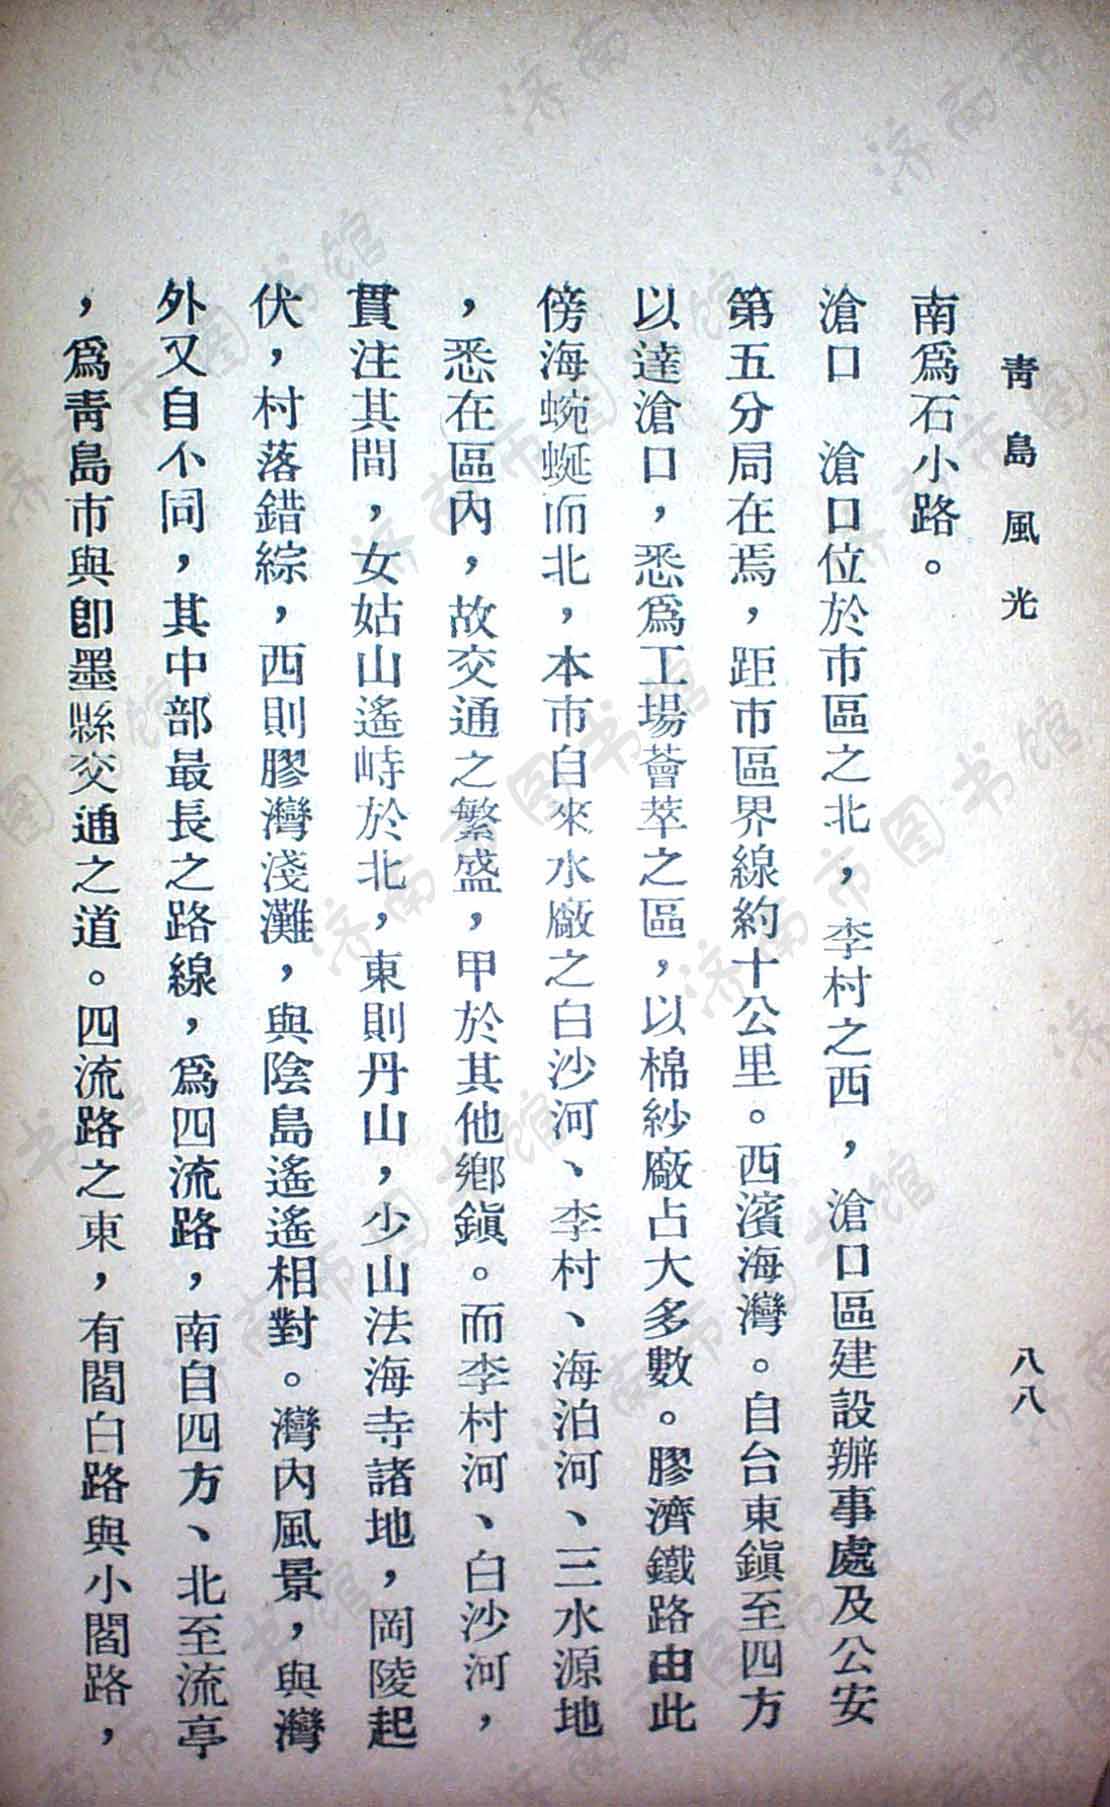 靑島風光
八八
南爲石小路。
滄口　滄口位於市區之北，李村之西，滄口區建設辦事處及公安
第五分局在焉，距市區界線約十公里。西濱海灣。自台東鎭至四方
以達滄口，悉爲工場薈萃之區，以棉紗廠占大多數。膠濟鐵路由此
傍海蜿蜒而北，本市自來水廠之白沙河、李村、海泊河、三水源地
，悉在區內，故交通之繁盛，甲於其他鄉鎭。而李村河、白沙河，
貫注其間，女姑山遙峙於北，東則丹山，少山法海寺諸地，岡陵起
伏，村落錯綜，西則膠灣淺灘，與陰島遙遙相對。灣內風景，與灣
外又自不同，其中部最長之路線，爲四流路，南自四方、北至流亭
，爲靑島市與卽墨縣交通之道。四流路之東，有閻白路與小閻路，
济南市图书馆